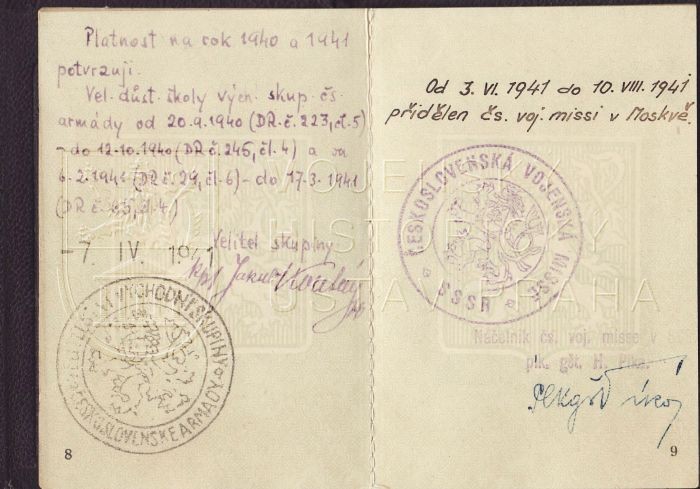 Platnost na rok 1940 a 1941
potvrzuji.
Vel. důst. školy vých. skup. čs.
armády od 20.9.1940 (DR.č.223,čl.5)
-do 12.10.1940 (DR.č.245,čl.4) a od
6.2.1941 (DR.č.29,čl.6)-do 17.3.1941
(DR.č.65,čl.4.)
-7. IV. 1941
Velitel skupiny
kpt. Jakub Koutný
VÝCHODNÍ SKUPINY
ČESKOSLOVENSKÉ ARMÁDY
8
Od 3. VI. 1941 do 10. VIII. 1941
přidělen čs. voj. missi v Moskvě.
ČESKOSLOVENSKÁ VOJENSKÁ MISSE
SSSR
Náčelník čs. voj. misse v
plk. gšt. H. Píka.
9
VOJENSKÝ
HISTORICKÝ
ÚSTAV PRAHA